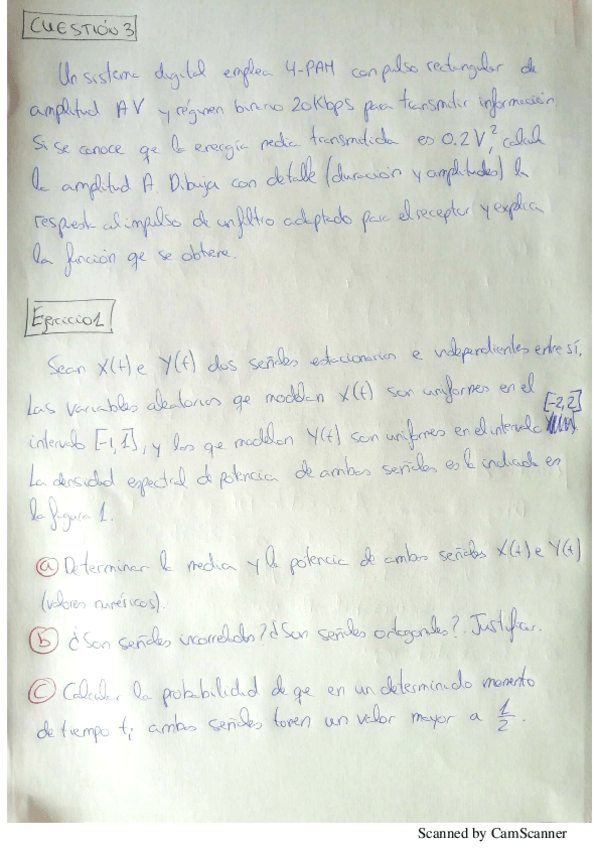 CUESTIÓN 3
Un sistema digital emplea 4-PAM con pulso rectangular de
amplitud A V y régimen binario 20Kbps para transmitir información
Si se conoce que la energía media transmitida es 0.2V², calcula
la amplitud A. Dibuja con detalle (duración y amplitudes) la
respuesta al impulso de un filtro adaptado para el receptor y explica
la función qe se obtiene.
Ejercicio 1
Sean X(t) e Y(t) dos señales estacionarias e independientes entre sí,
Las variables aleatorias qe modelan X(t) son uniformes en el
intervalo [-1,1], y las qe modelan Y(t) son uniformes en el intervalo [-2,2]
La densidad espectral de potencia de ambas señales es la indicada en
la figura 1.
a Determinar la media y la potencia de ambas señales X(t) e Y(t)
(valores numéricos).
b ¿Son señales incorreladas? ¿Son señales ortogonales?. Justificar.
c Calcular la probabilidad de que en un determinado momento
de tiempo ti ambas señales tomen un valor mayor a 1/2.
Scanned by CamScanner